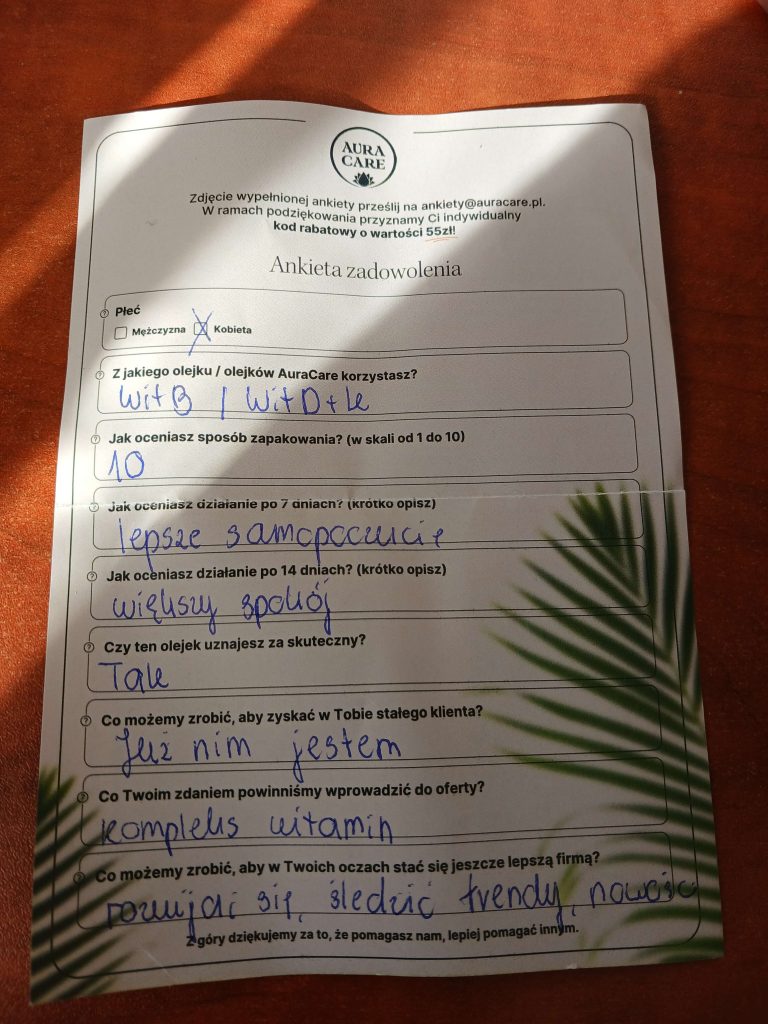 AURA
CARE
Zdjęcie wypełnionej ankiety prześlij na ankiety@auracare.pl.
W ramach podziękowania przyznamy Ci indywidualny
kod rabatowy o wartości 55zł!
Ankieta zadowolenia
Płeć
Mężczyzna X Kobieta
Z jakiego olejku / olejków AuraCare korzystasz?
Wit B / Wit D+k
Jak oceniasz sposób zapakowania? (w skali od 1 do 10)
10
Jak oceniasz działanie po 7 dniach? (krótko opisz)
lepsze samopoczucie
Jak oceniasz działanie po 14 dniach? (krótko opisz)
większy spokój
Czy ten olejek uznajesz za skuteczny?
Tak
Co możemy zrobić, aby zyskać w Tobie stałego klienta?
Już nim jestem
Co Twoim zdaniem powinniśmy wprowadzić do oferty?
kompleks witamin
Co możemy zrobić, aby w Twoich oczach stać się jeszcze lepszą firmą?
rozwijać się, śledzić trendy, nowości
Z góry dziękujemy za to, że pomagasz nam, lepiej pomagać innym.